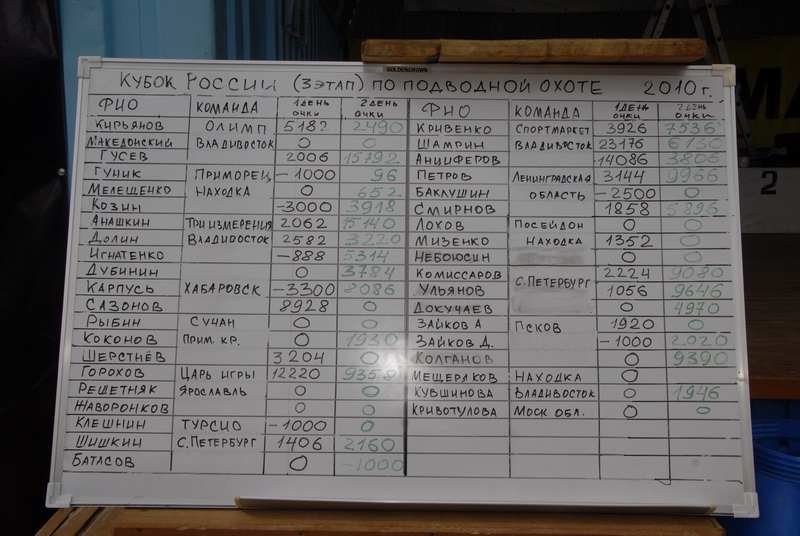 GOLDENCROWN
КУБОК РОССИИ (3ЭТАП) ПО ПОДВОДНОЙ ОХОТЕ 2010 г.
ФИО КОМАНДА 1 ДЕНЬ ОЧКИ 2 ДЕНЬ ОЧКИ
КИРЬЯНОВ ОЛИМП 5182 2490
МАКЕДОНСКИЙ ВЛАДИВОСТОК 0 0
ГУСЕВ 2006 15792
ГУНИК ПРИМОРЕЦ -1000 96
МЕЛЕЩЕНКО НАХОДКА 0 652
КОЗИН -3000 3918
АНАШКИН ТРИ ИЗМЕРЕНИЯ 2062 15140
ДОЛИН ВЛАДИВОСТОК 2582 3220
ИГНАТЕНКО -888 5314
ДУБИНИН 0 3784
КАРПУСЬ ХАБАРОВСК -3300 8086
САЗОНОВ 8928 0
РЫБИН СУЧАН 0 0
КОКОНОВ ПРИМ. КР. 0 1930
ШЕРСТНЁВ 3204 0
ГОРОХОВ ЦАРЬ ИГРЫ 12220 9358
РЕШЕТНЯК ЯРОСЛАВЛЬ 0 0
ЖАВОРОНКОВ 0 0
КЛЕШНИН ТУРСИО -1000 0
ШИШКИН С.ПЕТЕРБУРГ 1406 2160
БАТАСОВ 0 -1000
ФИО КОМАНДА 1 ДЕНЬ ОЧКИ 2 ДЕНЬ ОЧКИ
КРИВЕНКО СПОРТМАРКЕТ 3926 7536
ШАМРИН ВЛАДИВОСТОК 23176 6130
АНЦИФЕРОВ 14086 3806
ПЕТРОВ ЛЕНИНГРАДСКАЯ 3144 9966
БАКЛУШИН ОБЛАСТЬ -2500 0
СМИРНОВ 1858 5896
ЛОХОВ ПОСЕЙДОН 0 0
МИЗЕНКО НАХОДКА 1352 0
НЕБОЮСИН 0 0
КОМИССАРОВ С.ПЕТЕРБУРГ 2224 9080
УЛЬЯНОВ 1056 9646
ДОКУЧАЕВ 0 4970
ЗАЙКОВ А ПСКОВ 1920 0
ЗАЙКОВ Д. -1000 2020
КОЛГАНОВ 0 9390
МЕЩЕРЯКОВ НАХОДКА 0
КУВШИНОВА ВЛАДИВОСТОК 0 1946
КРИВОТУЛОВА МОСК ОБЛ. 0 0
2